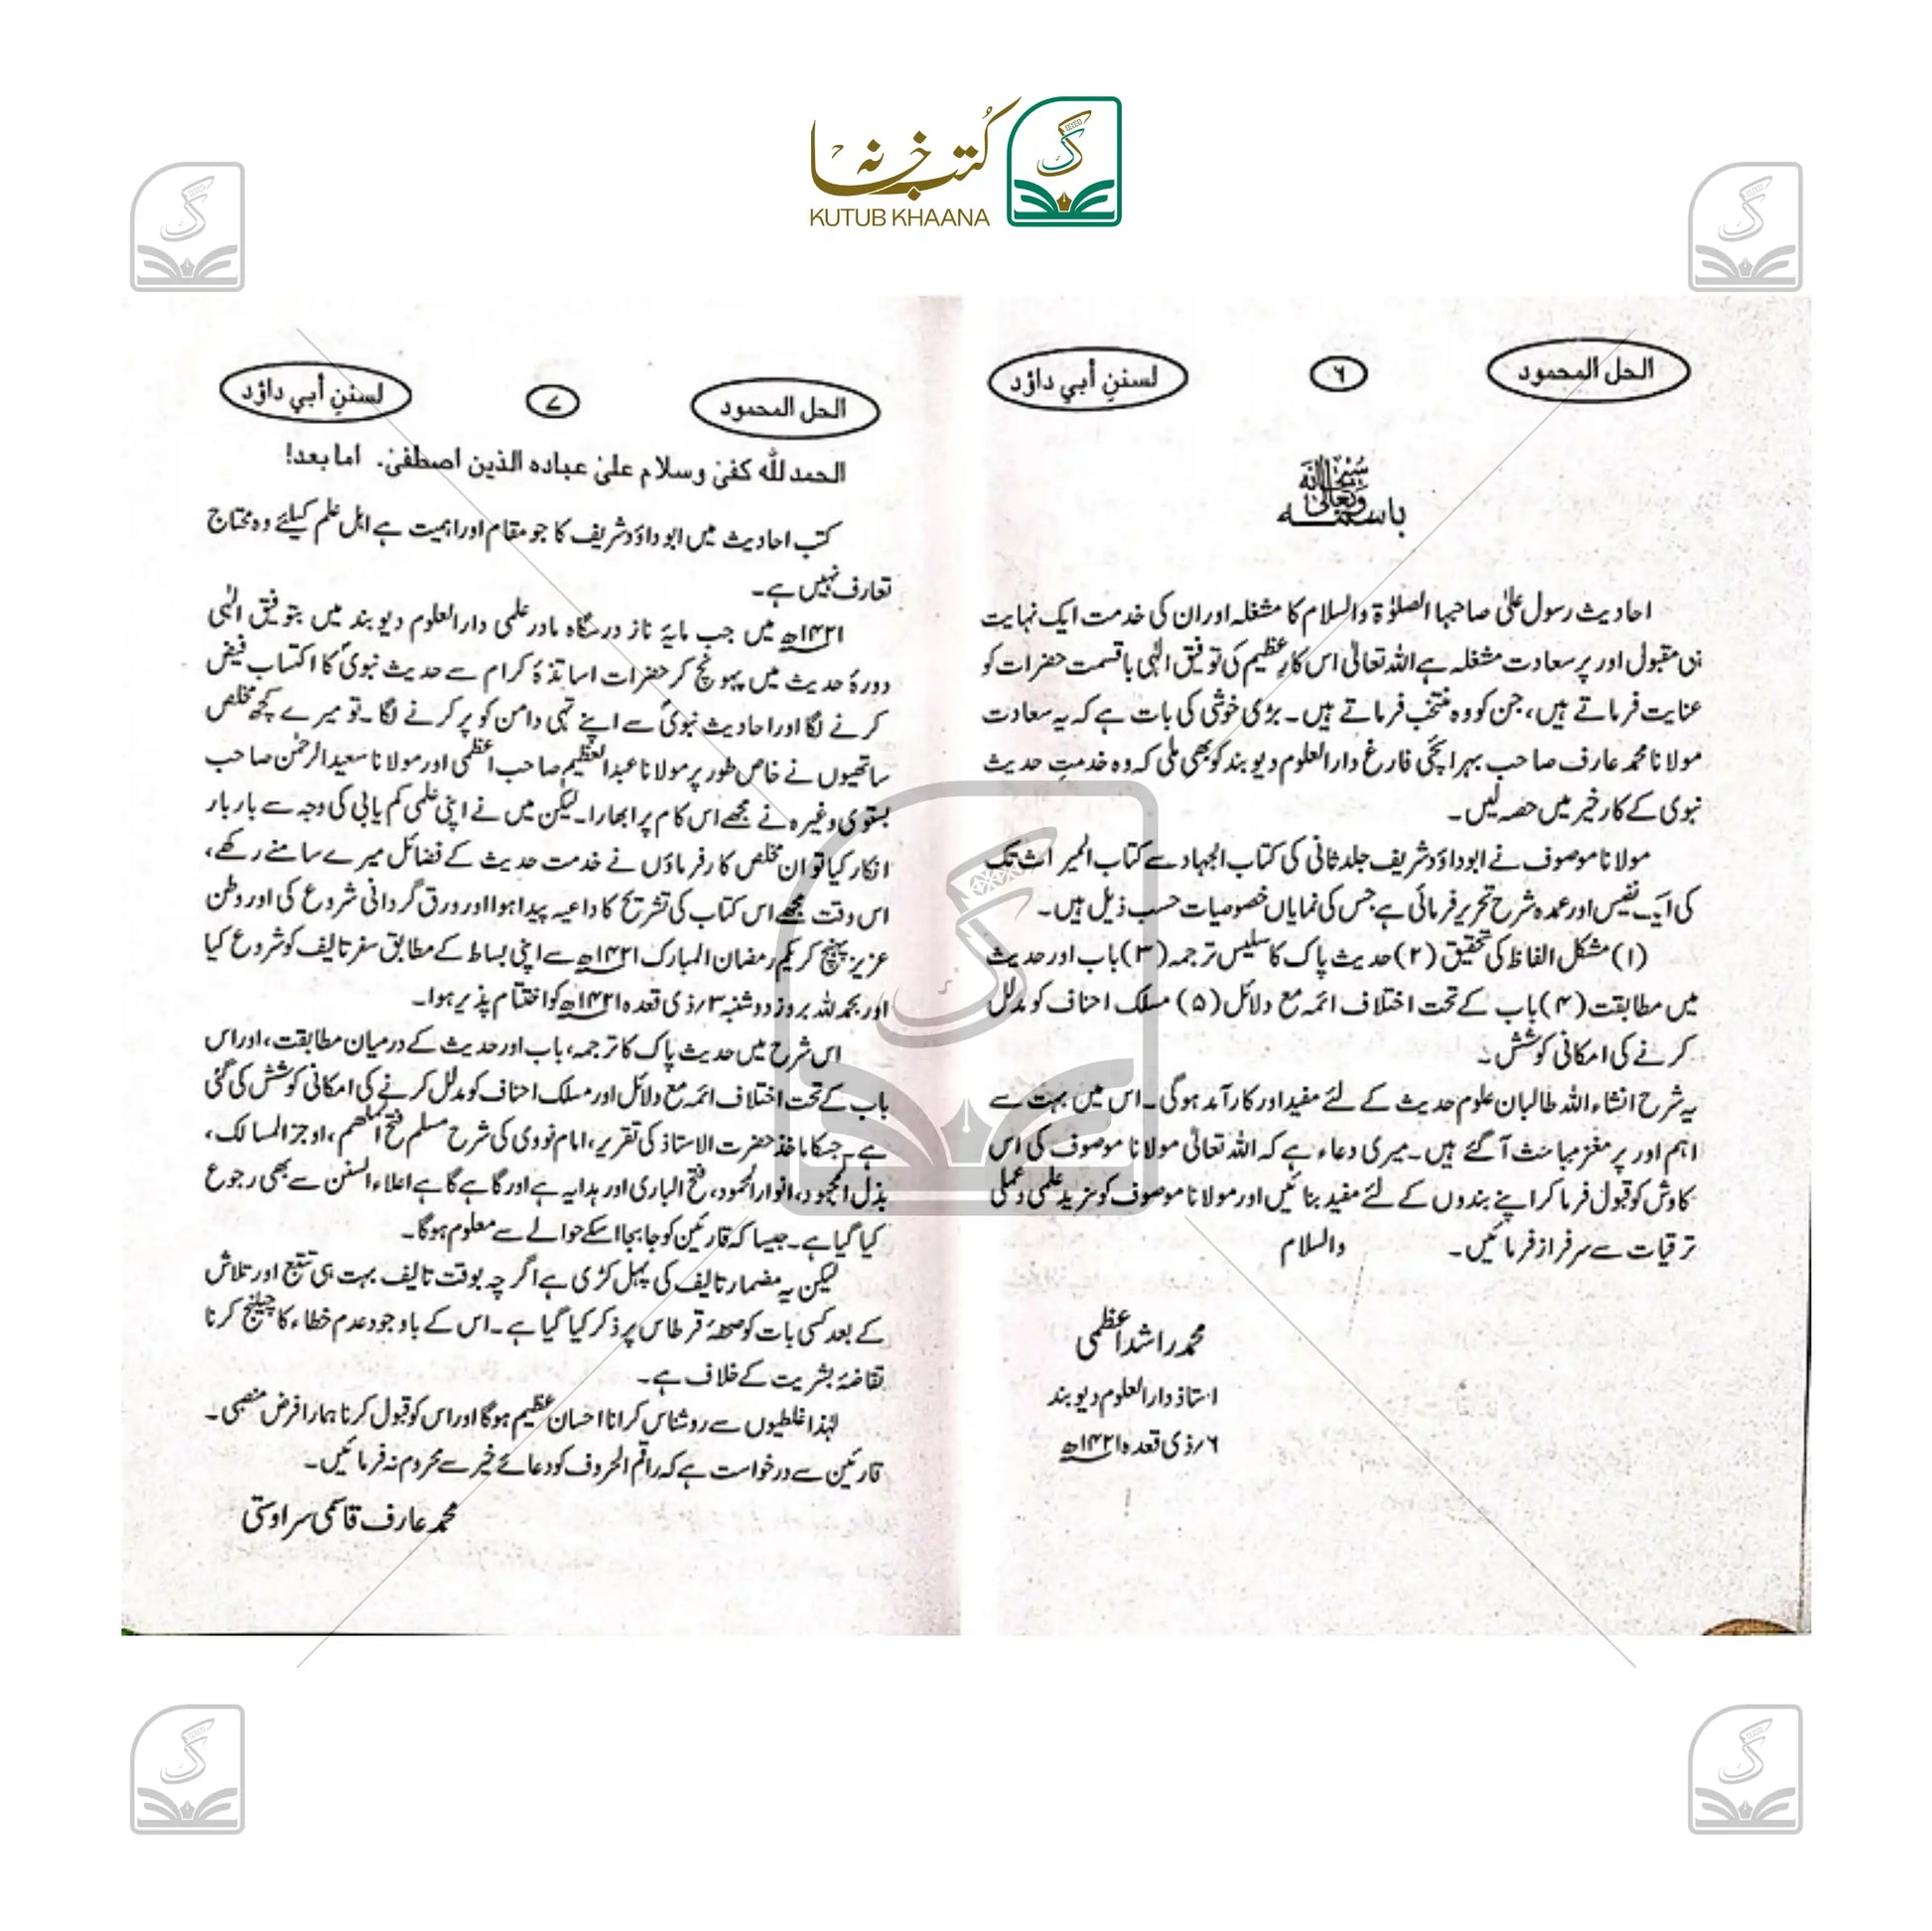 کتب خانہ
KUTUB KHAANA
الحل المحمود ۶ لسننِ أبي داؤد
باسمہ سبحانہ وتعالیٰ
احادیث رسول علیٰ صاحبہا الصلوٰۃ والسلام کا مشغلہ اور ان کی خدمت ایک نہایت
ہی مقبول اور پر سعادت مشغلہ ہے اللہ تعالیٰ اس کارِ عظیم کی توفیق الٰہی با قسمت حضرات کو
عنایت فرماتے ہیں، جن کو وہ منتخب فرماتے ہیں۔ بڑی خوشی کی بات ہے کہ یہ سعادت
مولانا محمد عارف صاحب بہرائچی فارغ دارالعلوم دیوبند کو بھی ملی کہ وہ خدمتِ حدیث
نبوی کے کار خیر میں حصہ لیں۔
مولانا موصوف نے ابوداؤد شریف جلد ثانی کی کتاب الجہاد سے کتاب المیراث تک
کی ایک نفیس اور عمدہ شرح تحریر فرمائی ہے جس کی نمایاں خصوصیات حسب ذیل ہیں۔
(۱) مشکل الفاظ کی تحقیق (۲) حدیث پاک کا سلیس ترجمہ (۳) باب اور حدیث
میں مطابقت (۴) باب کے تحت اختلاف ائمہ مع دلائل (۵) مسلک احناف کو مدلل
کرنے کی امکانی کوشش۔
یہ شرح انشاء اللہ طالبان علوم حدیث کے لئے مفید اور کارآمد ہوگی۔ اس میں بہت سے
اہم اور پر مغز مباحث آگئے ہیں۔ میری دعاء ہے کہ اللہ تعالیٰ مولانا موصوف کی اس
کاوش کو قبول فرما کر اپنے بندوں کے لئے مفید بنائیں اور مولانا موصوف کو مزید علمی و عملی
ترقیات سے سرفراز فرمائیں۔ والسلام
محمد راشد اعظمی
استاذ دارالعلوم دیوبند
۶/ذی قعدہ ۱۴۲۱ھ
الحل المحمود ۷ لسننِ أبي داؤد
الحمد للّٰہ کفیٰ وسلام علیٰ عبادہ الذین اصطفیٰ۔ اما بعد!
کتب احادیث میں ابوداؤد شریف کا جو مقام اور اہمیت ہے اہل علم کیلئے وہ محتاج
تعارف نہیں ہے۔
۱۴۲۱ھ میں جب مایۂ ناز درسگاہ مادر علمی دارالعلوم دیوبند میں بتوفیق الٰہی
دورۂ حدیث میں پہونچ کر حضرات اساتذۂ کرام سے حدیث نبویؐ کا اکتساب فیض
کرنے لگا اور احادیث نبویؐ سے اپنے تہی دامن کو پر کرنے لگا۔ تو میرے کچھ مخلص
ساتھیوں نے خاص طور پر مولانا عبدالعظیم صاحب اعظمی اور مولانا سعید الرحمٰن صاحب
بستوی وغیرہ نے مجھے اس کام پر ابھارا۔ لیکن میں نے اپنی علمی کم یابی کی وجہ سے بار بار
انکار کیا تو ان مخلص کارفرماؤں نے خدمت حدیث کے فضائل میرے سامنے رکھے،
اس وقت مجھے اس کتاب کی تشریح کا داعیہ پیدا ہوا اور ورق گردانی شروع کی اور وطن
عزیز پہنچ کر یکم رمضان المبارک ۱۴۲۱ھ سے اپنی بساط کے مطابق سفر تالیف کو شروع کیا
اور بحمد للہ بروز دوشنبہ ۳/ذی قعدہ ۱۴۲۱ھ کو اختتام پذیر ہوا۔
اس شرح میں حدیث پاک کا ترجمہ، باب اور حدیث کے درمیان مطابقت، اور اس
باب کے تحت اختلاف ائمہ مع دلائل اور مسلک احناف کو مدلل کرنے کی امکانی کوشش کی گئی
ہے۔ جسکا ماخذ حضرت الاستاذ کی تقریر، امام نووی کی شرح مسلم فتح الملھم، اوجز المسالک،
بذل المجہود، انوار المحمود، فتح الباری اور ہدایہ ہے اور گاہے گاہے اعلاء السنن سے بھی رجوع
کیا گیا ہے۔ جیسا کہ قارئین کو جا بجا اسکے حوالے سے معلوم ہوگا۔
لیکن یہ مضمار تالیف کی پہل کڑی ہے اگر چہ بوقت تالیف بہت ہی تتبع اور تلاش
کے بعد کسی بات کو صفحۂ قرطاس پر ذکر کیا گیا ہے۔ اس کے باوجود عدم خطاء کا چیلنج کرنا
تقاضۂ بشریت کے خلاف ہے۔
لہٰذا غلطیوں سے روشناس کرانا احسان عظیم ہوگا اور اس کو قبول کرنا ہمارا فرض منصبی۔
قارئین سے درخواست ہے کہ راقم الحروف کو دعائے خیر سے محروم نہ فرمائیں۔
محمد عارف قاسمی سراوستی